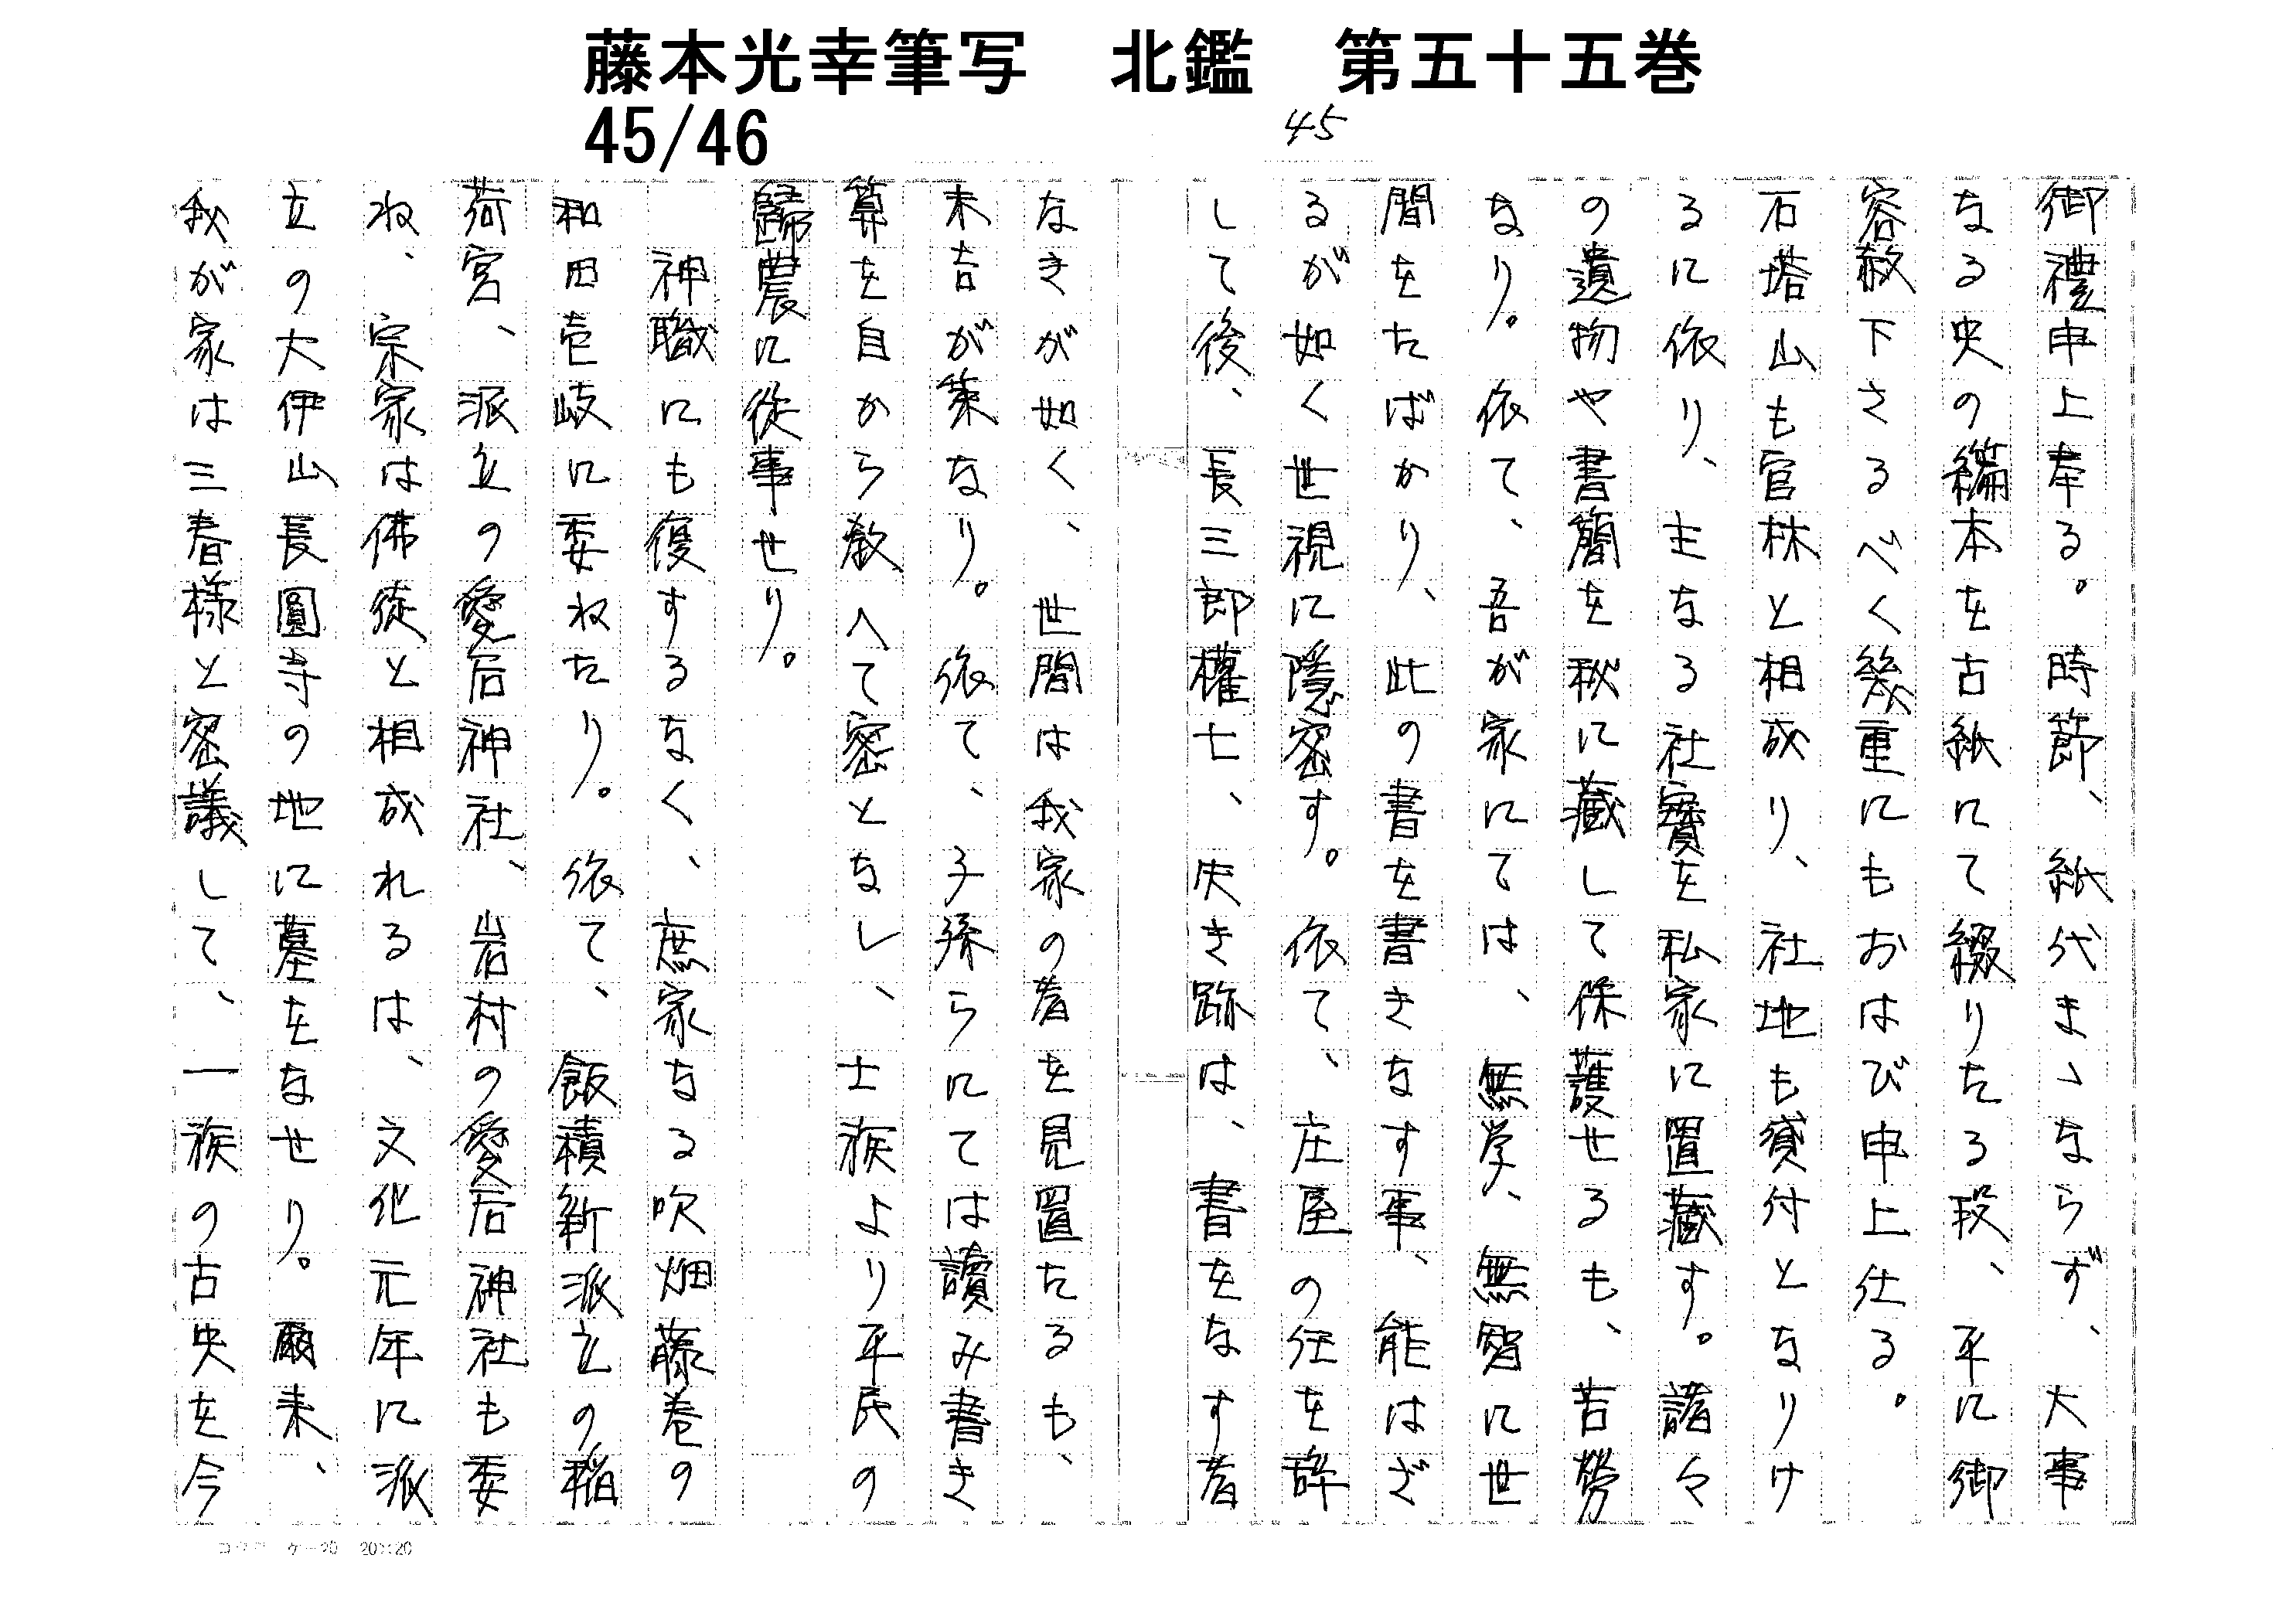 藤本光幸筆写　北鑑　第五十五巻
45/46
45
御禮申上奉る。時節、紙代まゝならず、大事
なる史の編本を古紙にて綴りたる段、平に御
容赦下さるべく幾重にもおはび申上仕る。
石塔山も官林と相成り、社地も貸付となりけ
るに依り、主なる社寳を私家に置藏す。諸々
の遺物や書簡を秋に藏して保護せるも、苦勞
なり。依て、吾が家にては、無学、無智に世
間をたばかり、此の書を書きなす事、能はざ
るが如く世視に隱密す。依て、庄屋の任を辞
して後、長三郎權七、失き跡は、書をなす者
なきが如く、世間は我家の者を見置たるも、
末吉が策なり。依て、子孫らにては讀み書き
算を自から教へて密となし、士族より平民の
歸農に従事せり。
神職にも復するなく、庶家なる吹畑藤巻の
和田壱岐に委ねたり。依て、飯積新派立の稲
荷宮、派立の愛宕神社、岩村の愛宕神社も委
ね、宗家は佛徒と相成れるは、文化元年に派
立の大伊山長圓寺の地に墓をなせり。爾来、
我が家は三春様と密議して、一族の古史を今
コクヨ　ケー20　20×20